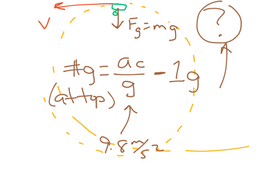 V
Fg=mg
?
#g = ac/g - 1g
(at top)
9.8 m/s²